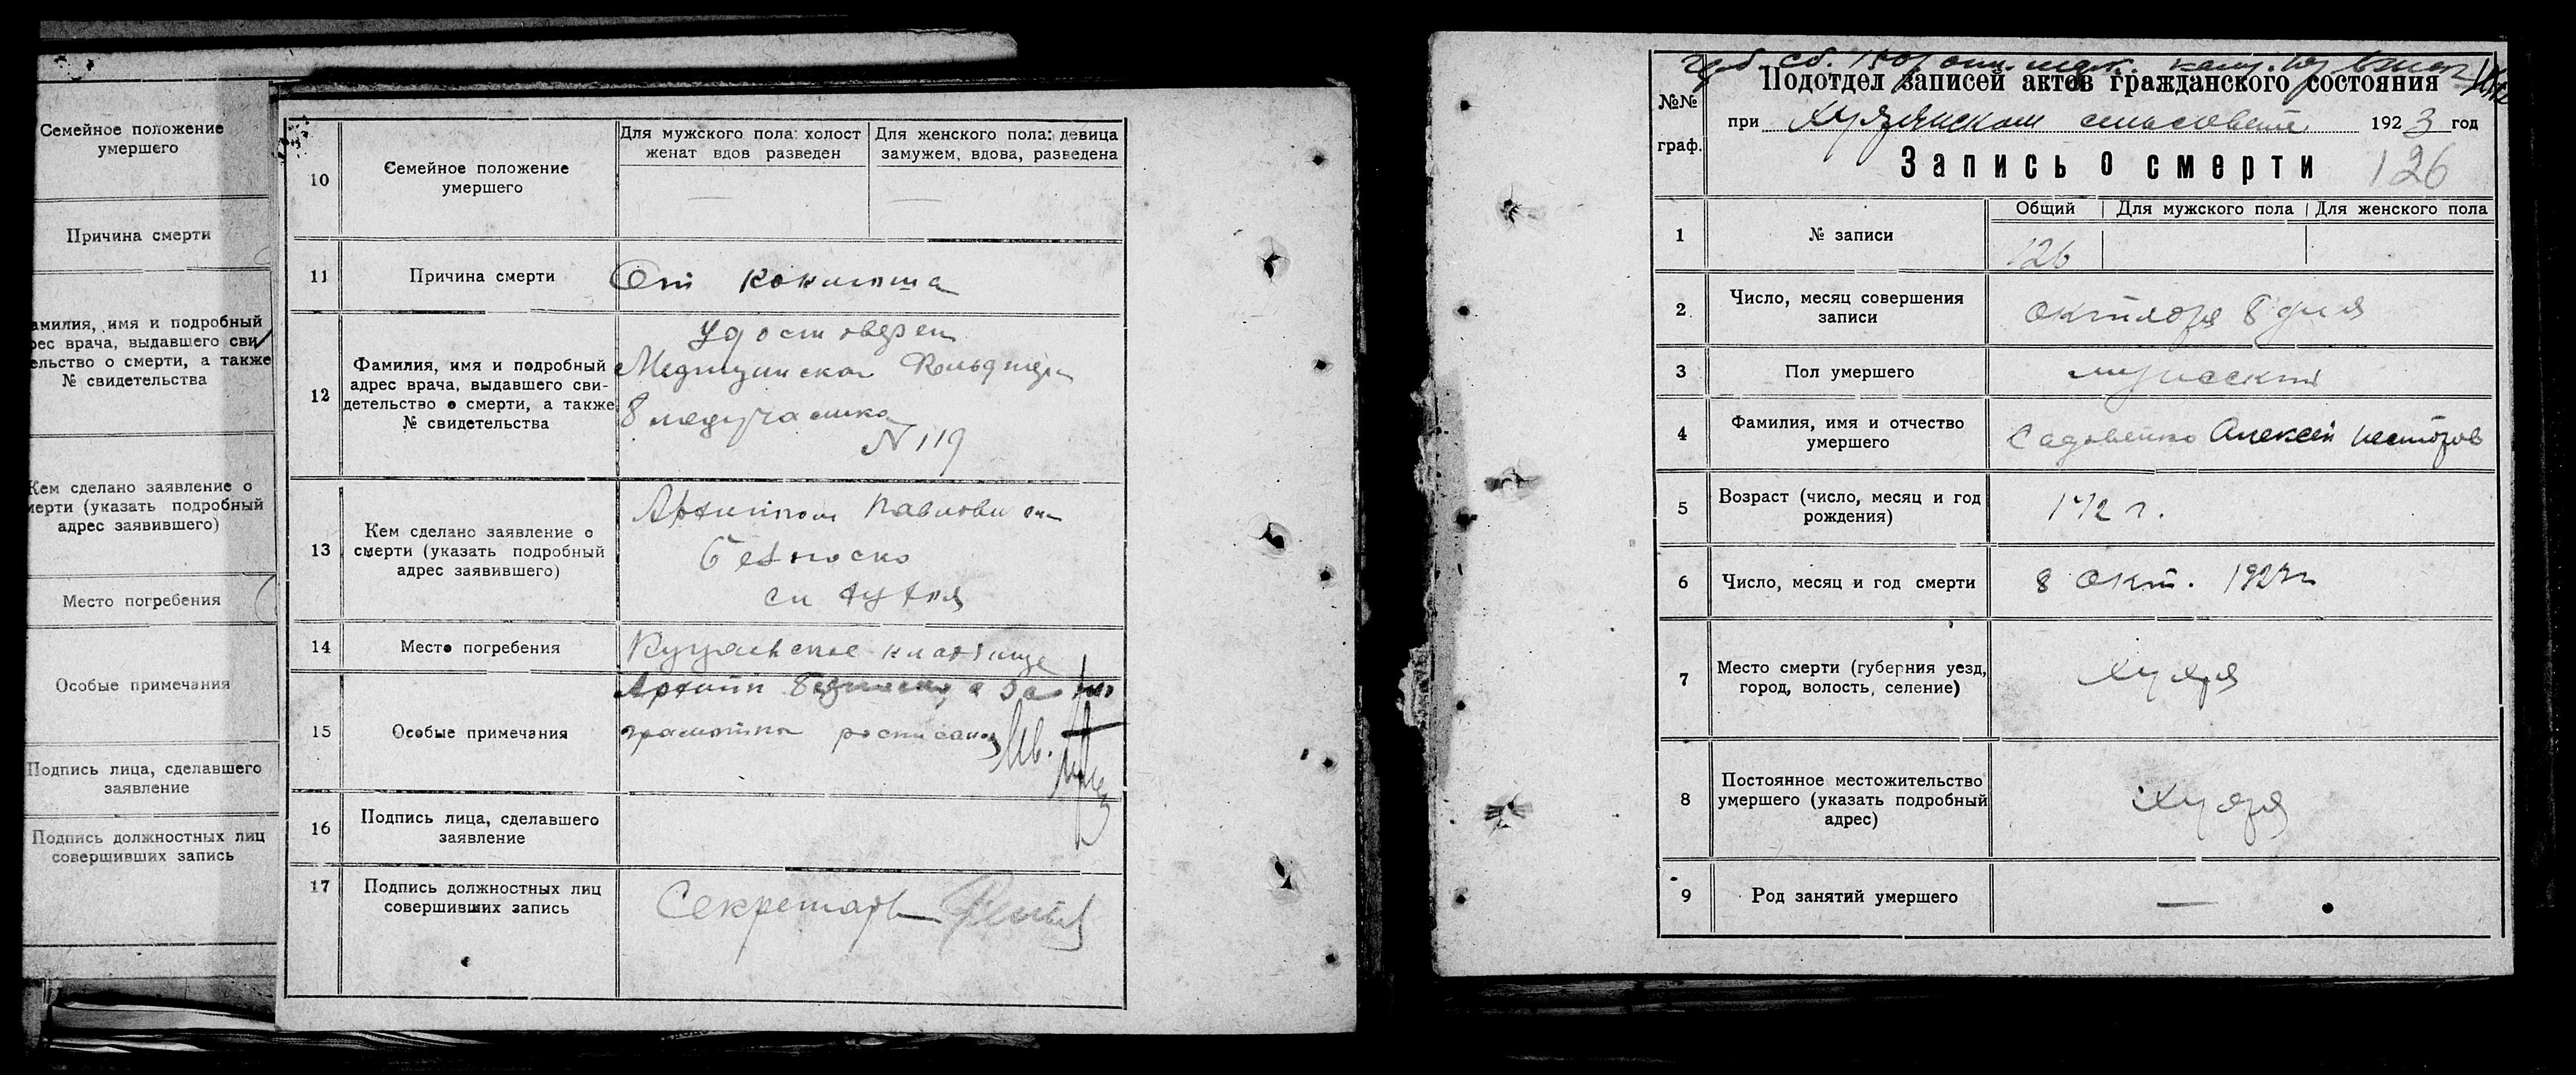 Семейное положение
умершего
Причина смерти
амилия, имя и подробный
рес врача, выдавшего сви
ельство о смерти, а также
№ свидетельства
Кем сделано заявление о
мерти (указать подробный
адрес заявившего)
Место погребения
Особые примечания
Подпись лица, сделавшего
заявление
Подпись должностных лиц
совершивших запись
10
Семейное положение
умершего
Для мужского пола: холост
женат вдов разведен
Для женского пола: девица
замужем, вдова, разведена
11
Причина смерти
От коклюша
12
Фамилия, имя и подробный
адрес врача, выдавшего сви-
детельство о смерти, а также
№ свидетельства
Удостоверен
8 медучастка
N 119
13
Кем сделано заявление о
смерти (указать подробный
адрес заявившего)
Архипом Павлович
14
Место погребения
кладбище
15
Особые примечания
Архип а за
16
Подпись лица, сделавшего
заявление
17
Подпись должностных лиц
совершивших запись
Секретарь
№№
граф.
Подотдел записей актов гражданского состояния
при сельсовете 1923 год
Запись о смерти 126
1
№ записи
Общий
Для мужского пола
Для женского пола
126
2
Число, месяц совершения
записи
октября 8 дня
3
Пол умершего
мужеский
4
Фамилия, имя и отчество
умершего
Алексей Несторов
5
Возраст (число, месяц и год
рождения)
1 1/2 г.
6
Число, месяц и год смерти
8 окт. 1923 г
7
Место смерти (губерния уезд,
город, волость, селение)
8
Постоянное местожительство
умершего (указать подробный
адрес)
9
Род занятий умершего
—